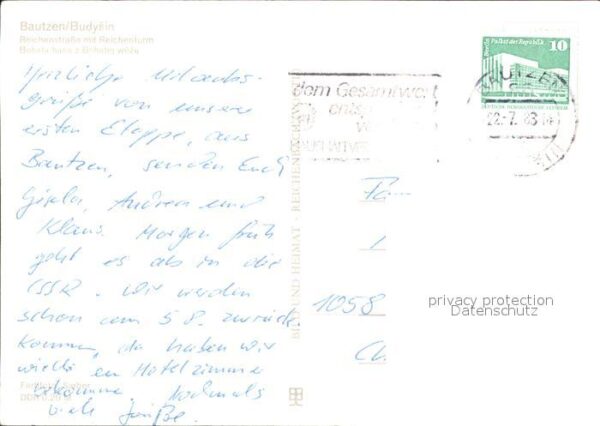 Bautzen/Budyšin
Reichenstraße mit Reichenturm
Bohata hasa z Bohatej wěžu
Herzliche Urlaubs-
grüße von unserer
ersten Etappe, aus
Bautzen, senden Euch
Gisela, Andrea und
Klaus. Morgen früh
geht es ab in die
CSSR. Wir werden
schon am 5.8. zurück
kommen, da haben wir
ein Hotelzimmer
bekommen. Nochmals
viele Grüße.
DDR 0,20 M
BILD UND HEIMAT · REICHENBACH
dem Gesamtwort
Berlin, Palast der Republik
10
BAUTZEN
22.-7.83
Fam
1
1058
privacy protection
Datenschutz